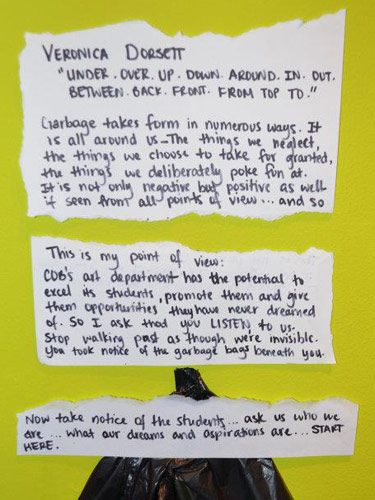 VERONICA DORSETT
"UNDER. OVER. UP. DOWN. AROUND. IN. OUT.
BETWEEN. BACK. FRONT. FROM TOP TO."
Garbage takes form in numerous ways. It
is all around us - The things we neglect,
the things we choose to take for granted,
the things we deliberately poke fun at.
It is not only negative but positive as well
if seen from all points of view... and so
This is my point of view:
COB's art department has the potential to
excel its students, promote them and give
them opportunities they have never dreamed
of. So I ask that you LISTEN to us.
Stop walking past as though were invisible.
You took notice of the garbage bags beneath you.
Now take notice of the students... ask us who we
are... what our dreams and aspirations are... START
HERE.